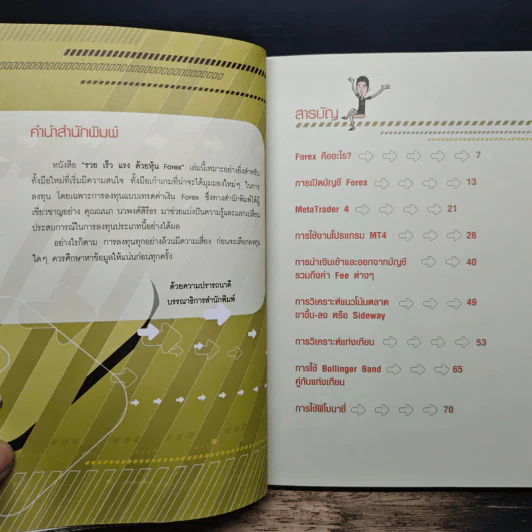 คำนำสำนักพิมพ์
หนังสือ "รวย เร็ว แรง ด้วยหุ้น Forex" เล่มนี้เหมาะอย่างยิ่งสำหรับ
ทั้งมือใหม่ที่เริ่มมีความสนใจ ทั้งมือเก๋าเกมที่น่าจะได้มุมมองใหม่ๆ ในการ
ลงทุน โดยเฉพาะการลงทุนแบบเทรดค่าเงิน Forex ซึ่งทางสำนักพิมพ์ได้ผู้
เชี่ยวชาญอย่าง คุณณนก นวพงศ์สิริธร มาช่วยแบ่งปันความรู้และแลกเปลี่ยน
ประสบการณ์ในการลงทุนประเภทนี้อย่างได้ผล
อย่างไรก็ตาม การลงทุนทุกอย่างล้วนมีความเสี่ยง ก่อนจะเลือกลงทุน
ใดๆ ควรศึกษาหาข้อมูลให้แน่นก่อนทุกครั้ง
ด้วยความปรารถนาดี
บรรณาธิการสำนักพิมพ์
สารบัญ
Forex คืออะไร? 7
การเปิดบัญชี Forex 13
MetaTrader 4 21
การใช้งานโปรแกรม MT4 26
การนำเงินเข้าและออกจากบัญชี 40
รวมถึงค่า Fee ต่างๆ
การวิเคราะห์แนวโน้มตลาด 49
ขาขึ้น-ลง หรือ Sideway
การวิเคราะห์แท่งเทียน 53
การใช้ Bollinger Band 65
คู่กับแท่งเทียน
การใช้ฟิโบนาชี่ 70